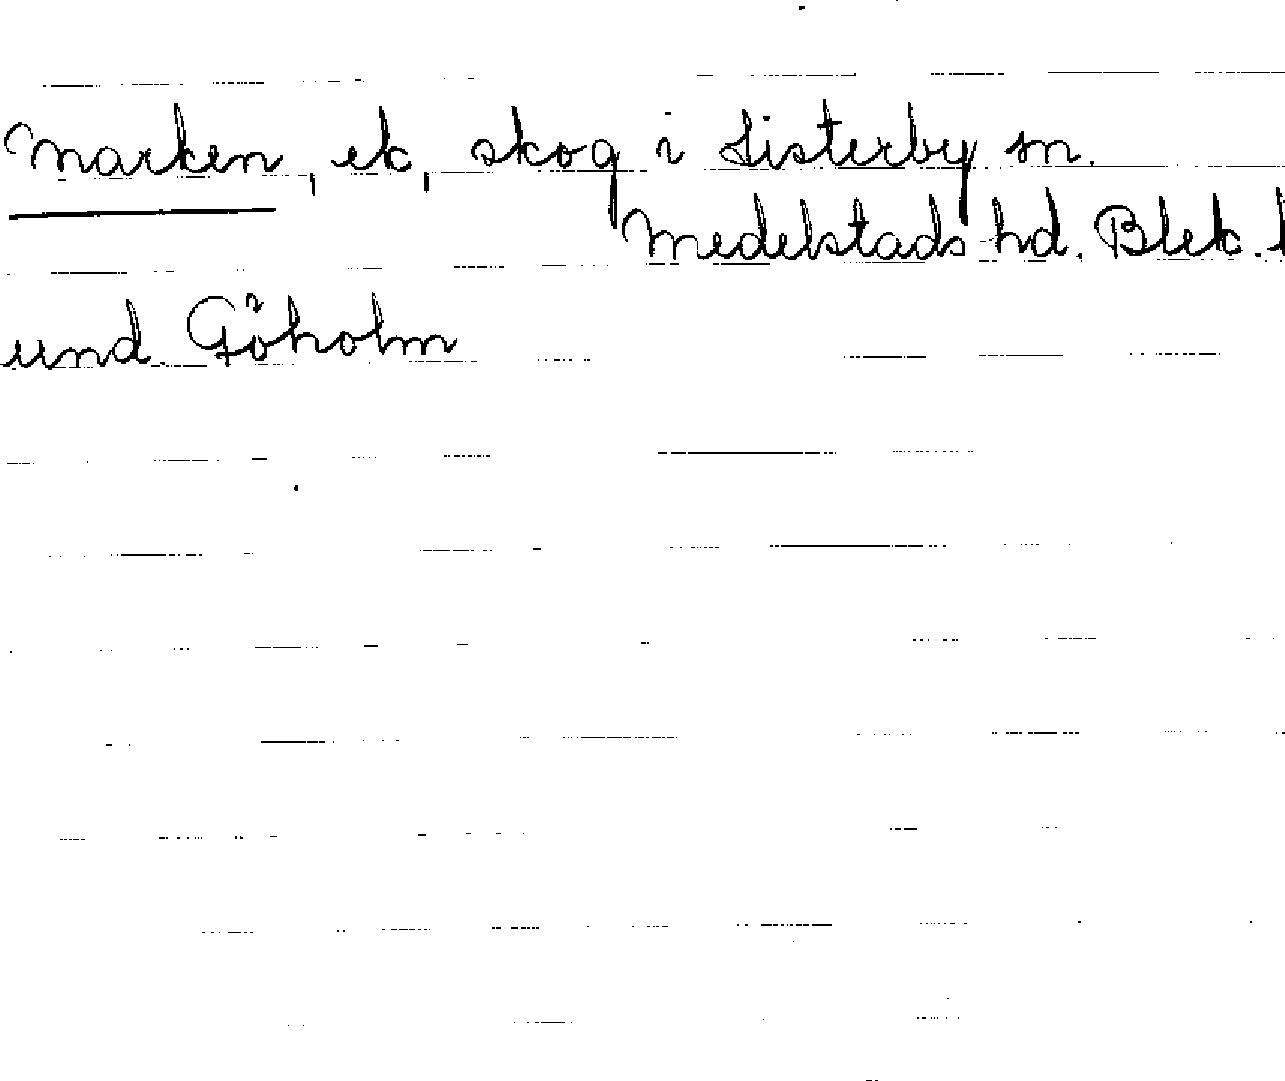 Marken, ek, skog i Listerby sn.
Medelstads hd. Blek. l
und. Göholm